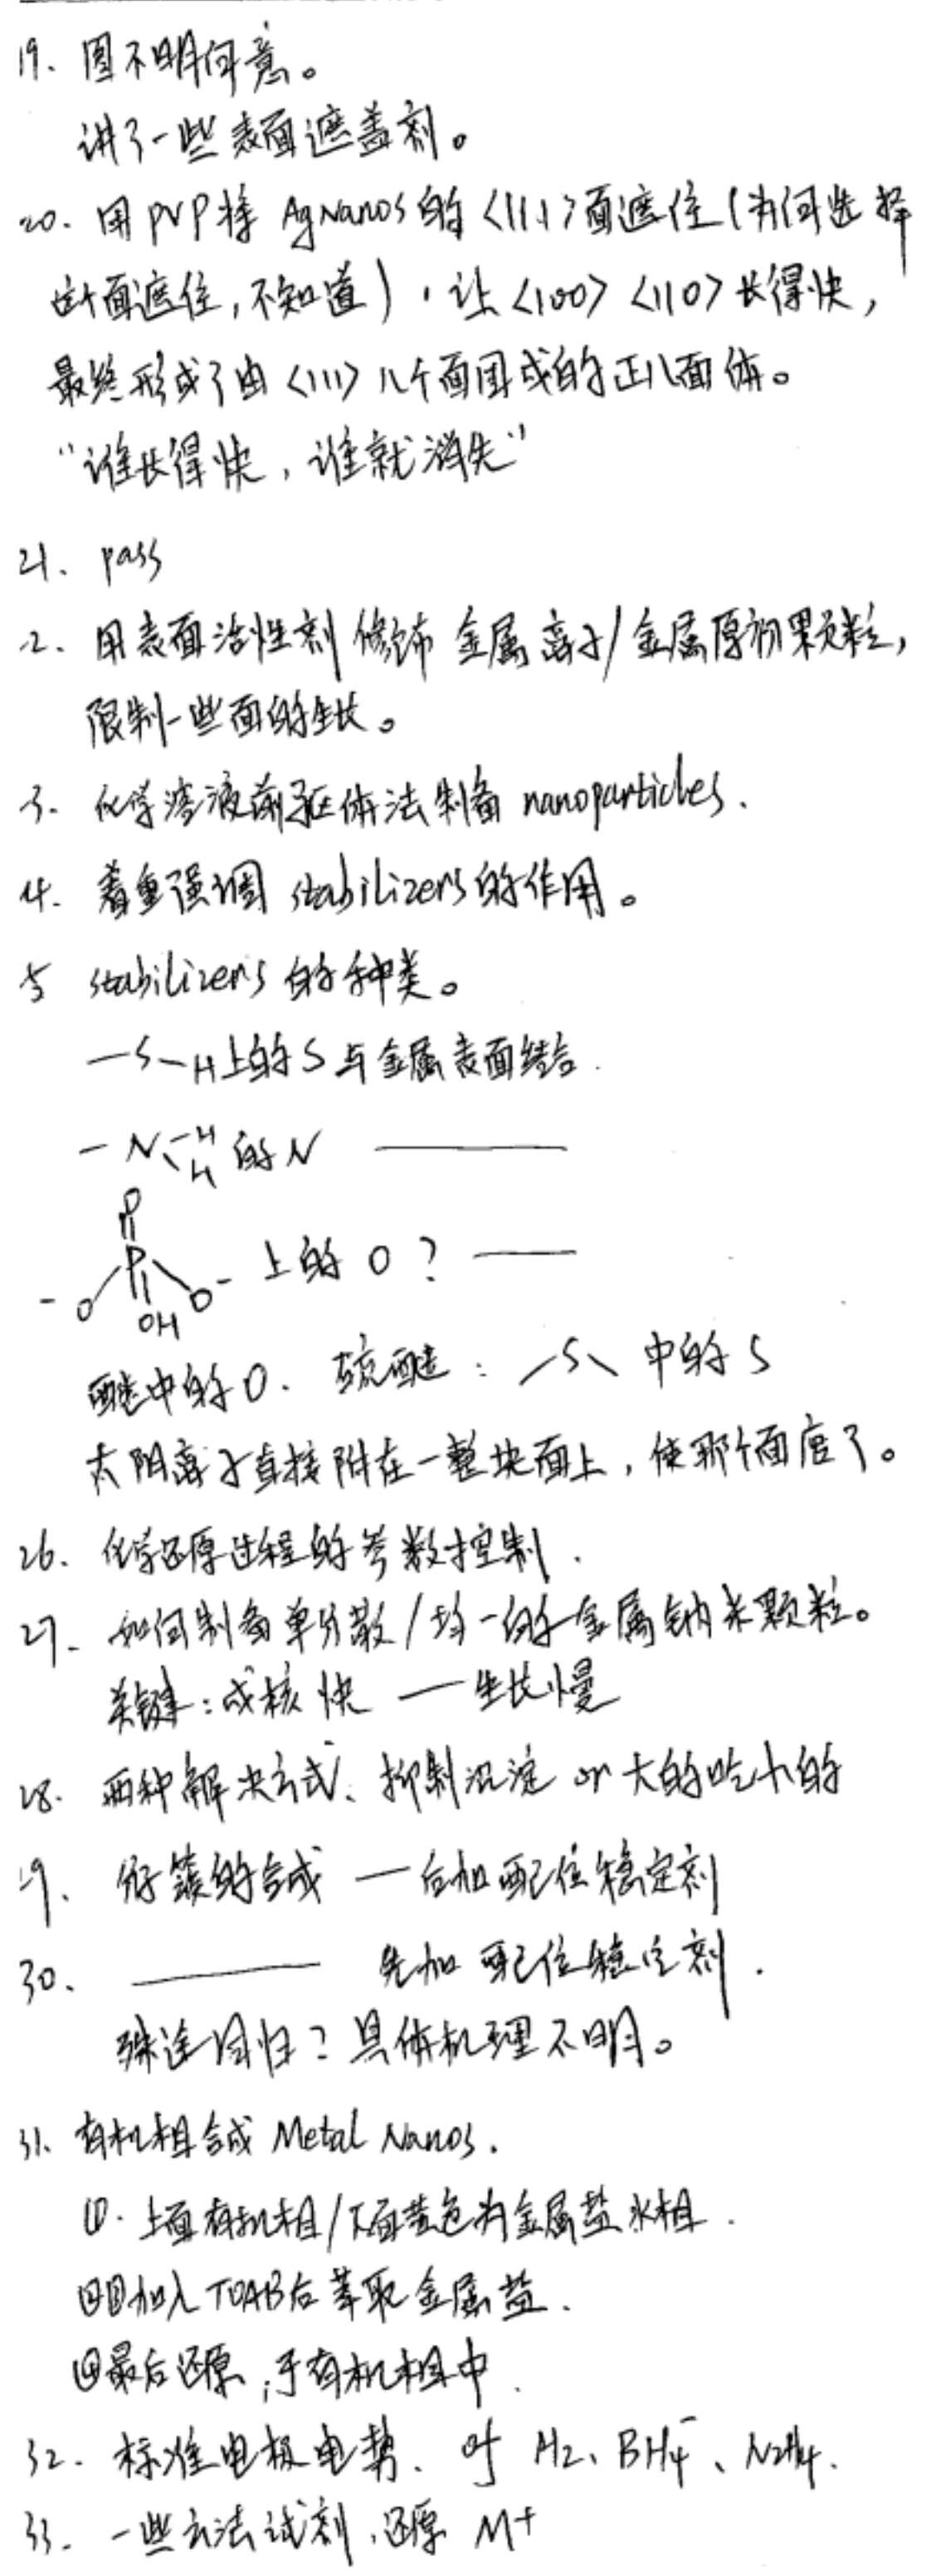 19. 图不明何意。
讲了一些表面遮盖剂。
20. 用 PVP 将 Ag Nanos 的 <111> 面遮住 (为何选择
这个面遮住,不知道),让 <100> <110> 长得快,
最终形成了由 <111> 几个面围成的正八面体。
“谁长得快,谁就消失”
21. pass
2. 用表面活性剂修饰 金属离子/金属原初颗粒,
限制一些面的生长。
3. 化学溶液前驱体法制备 nanoparticles.
4. 着重强调 stabilizers 的作用。
5 stabilizers 的种类。
—S—H上的 S 与金属表面结合.
— N —H H 的 N ———
O P - O OH O - 上的 O ? ——
醚中的 O. 硫醚: S 中的 S
大阳离子直接附在一整块面上,使那个面废了。
26. 化学还原过程的参数控制.
27. 如何制备单分散/均一的金属纳米颗粒。
关键:成核快 — 生长慢
28. 两种解决方式: 抑制沉淀 or 大的吃小的
29. 的合成 — 后加配位稳定剂
30. ——— 先加 配位稳定剂.
殊途同归?具体机理不明。
31. 有机相合成 Metal Nanos.
①. 上面有机相/下面蓝色为金属盐水相.
②③加入 TOAB后 萃取金属盐.
④最后还原,于有机相中.
32. 标准电极电势. of H2、BH4-、N2H4.
33. 一些方法试剂,还原 M+